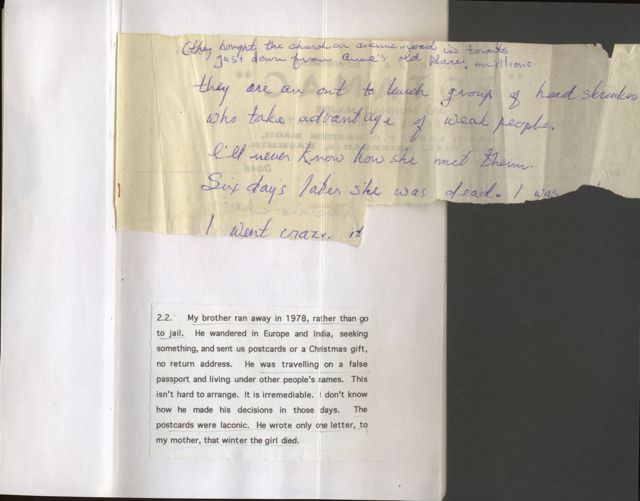 (they bought the church on avenue road in toronto
just down from Anna's old place, millions
they are an out to lunch group of head shrinkers
who take advantage of weak people.
I'll never know how she met them
Six days later she was dead. I was
I went crazy.
2.2. My brother ran away in 1978, rather than go
to jail. He wandered in Europe and India, seeking
something, and sent us postcards or a Christmas gift,
no return address. He was travelling on a false
passport and living under other people's names. This
isn't hard to arrange. It is irremediable. I don't know
how he made his decisions in those days. The
postcards were laconic. He wrote only one letter, to
my mother, that winter the girl died.